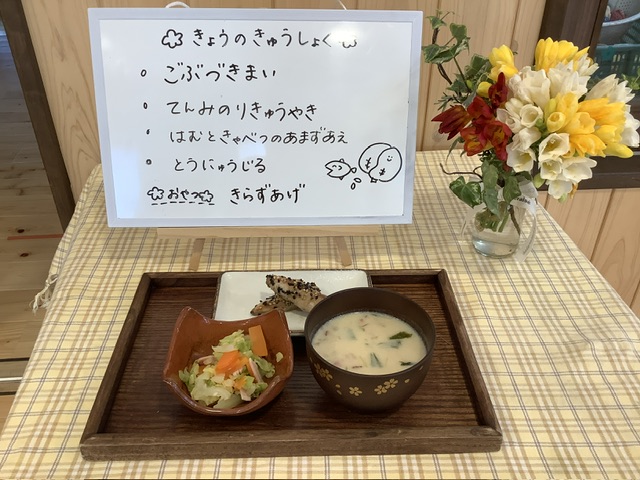 きょうのきゅうしょく
。ごぶづきまい
。てんみのりきゅうやき
。はむときゃべつのあまずあえ
。とうにゅうじる
おやつ きらずあげ